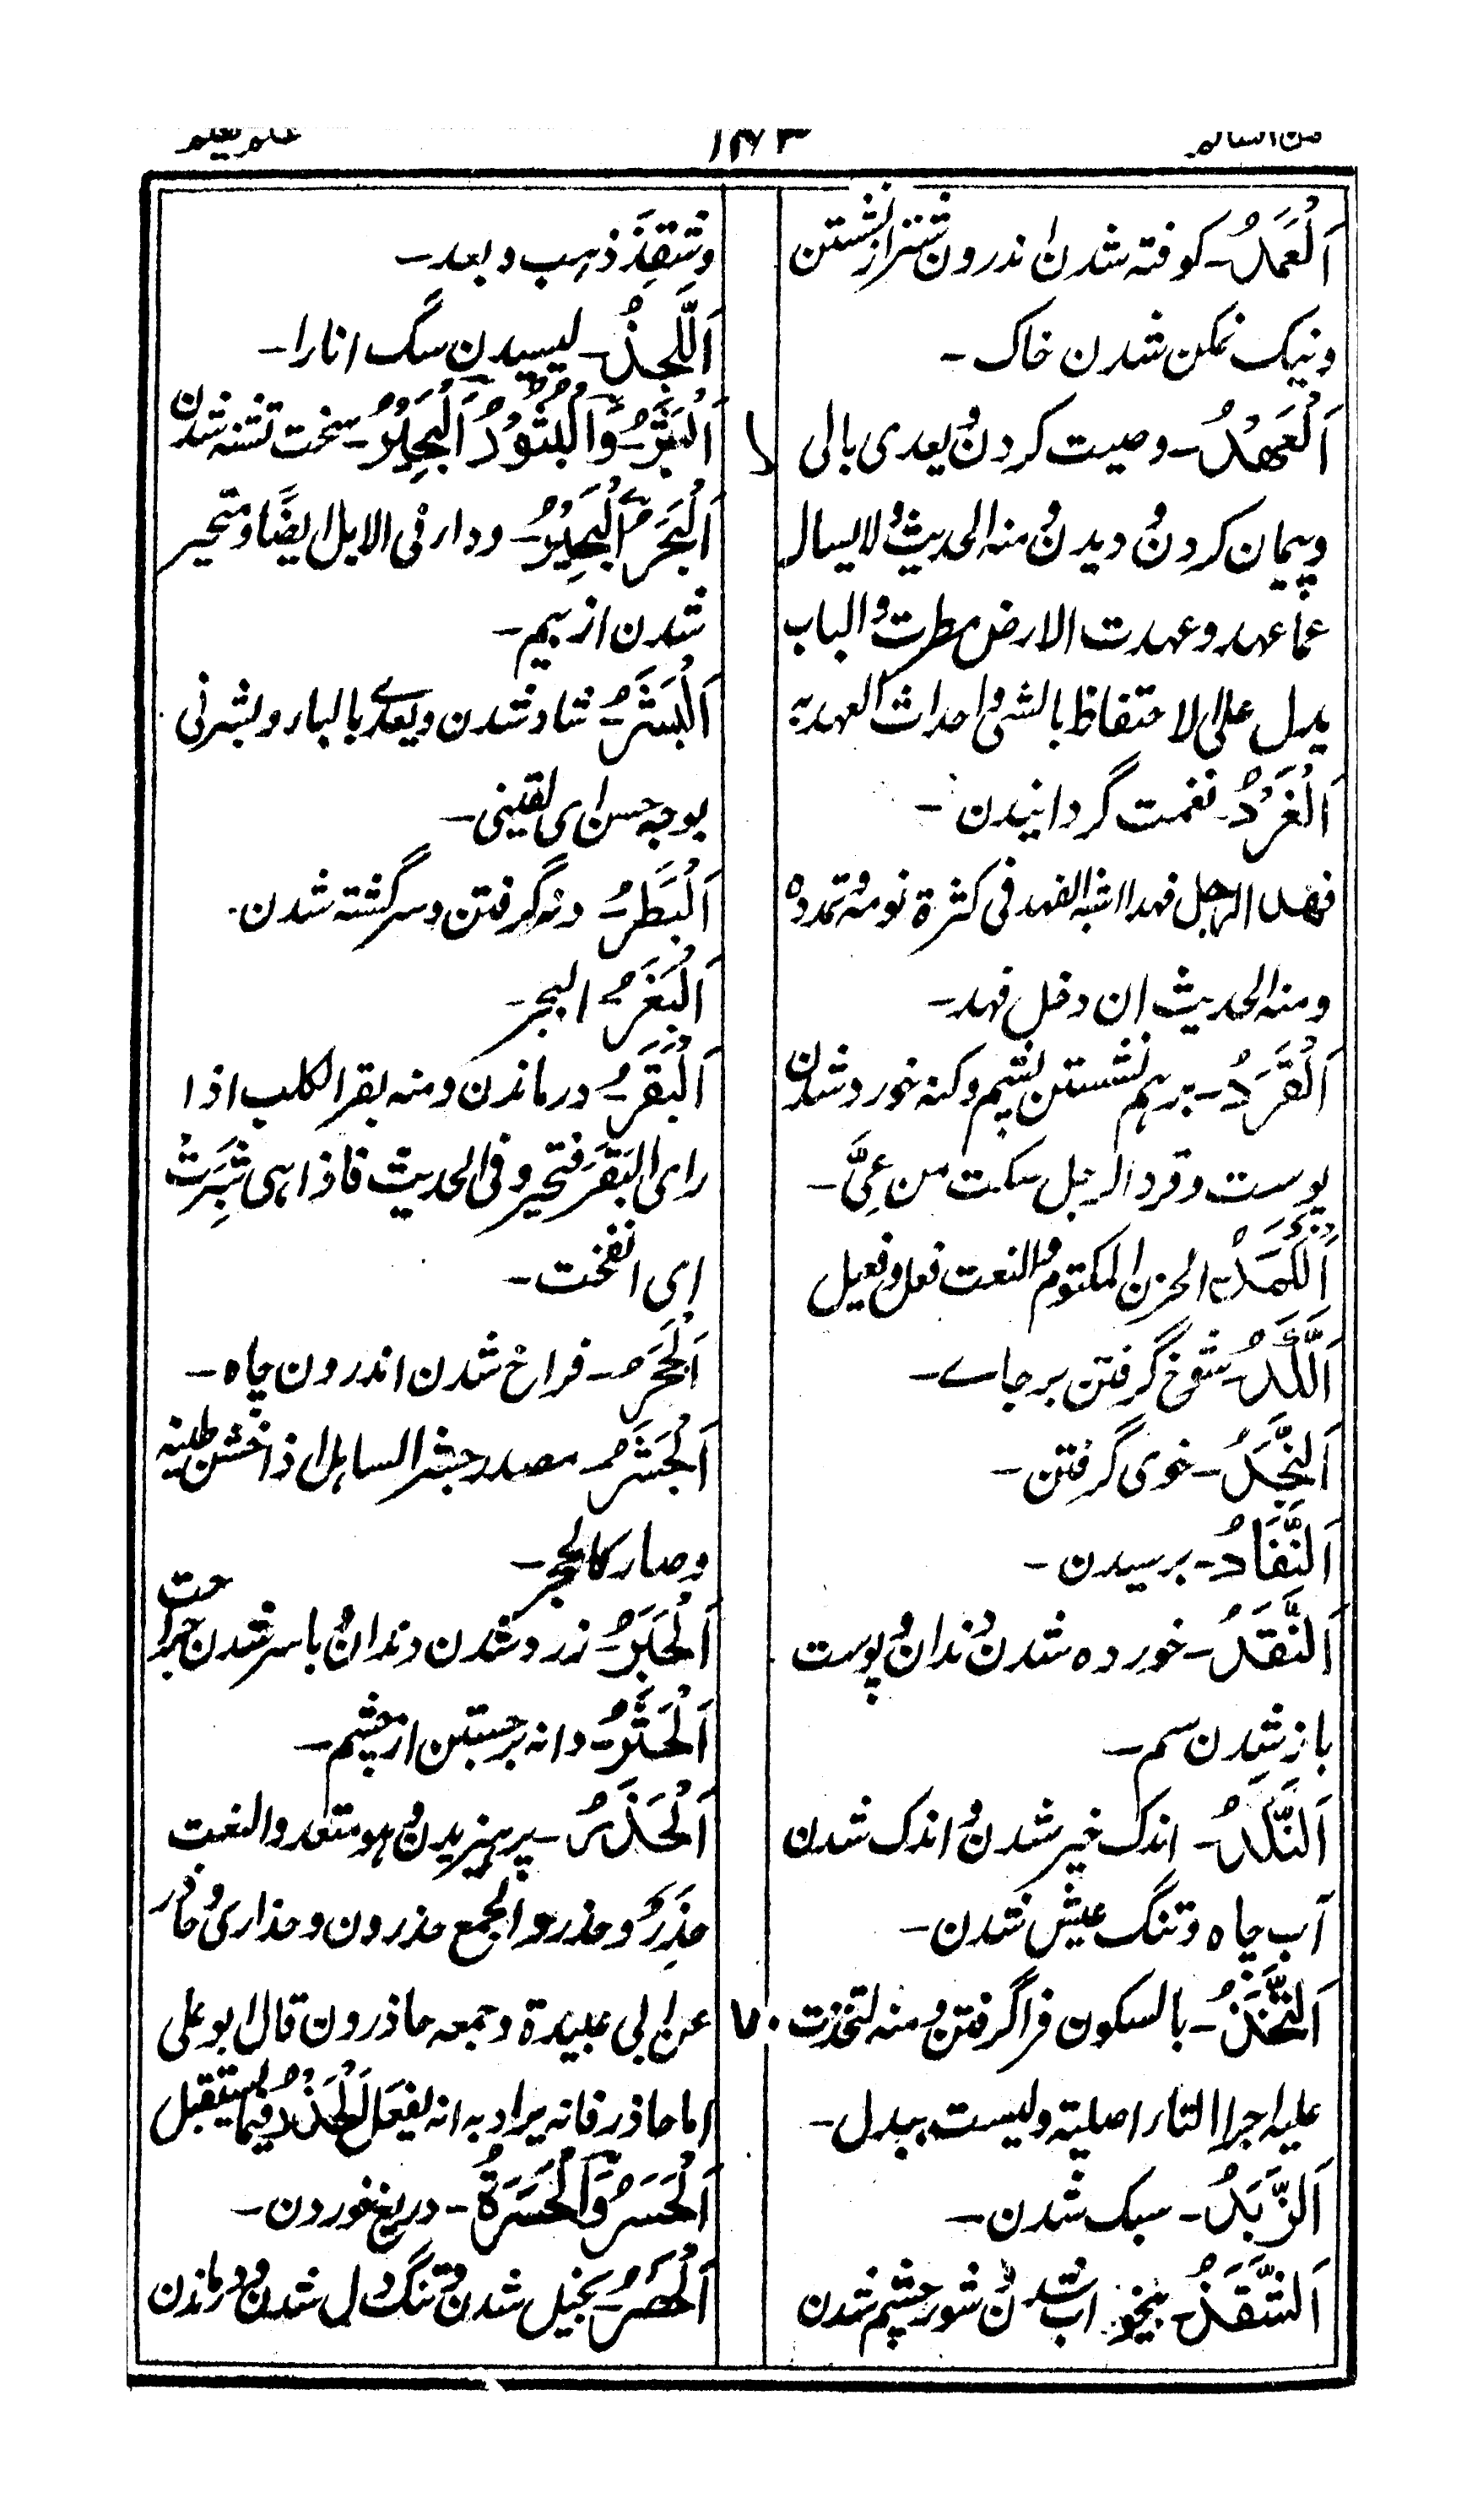 من السالم ۱۷۳ علم يعلم
اَلْعَمَدُ۔ کوفته شدن اندرون شتر از نشستن
ونیک نمکن شدن خاک۔
اَلْعَهْدُ۔ وصیت کردن و یعدی بالی
و پیمان کردن و دیدن و منه الحدیث و لا یسال
عما عهد و عهدت الارض مطرت و الباب
یدل علی الاحتفاظ بالشی و احداث العهد به
اَلْغَرَدُ۔ نغمت گردانیدن۔
فهد الرجل فهدا اشبه الفهد فی کثرة نومه و تمدده
ومنه الحدیث ان دخل فهد۔
اَلْقَرَدُ۔ برهم نشستن پشم و کنه خورد شدن
پوست و قرد الرجل سکت من عِیٍّ۔
اَلْکَمَدُ۔ الحزن المکتوم و النعت فعل و فعیل
اَللَّکَدُ۔ شوخ گرفتن بر جاے۔
اَلنَّجَدُ۔ خوی گرفتن۔
اَلنَّفَادُ۔ برسیدن۔
اَلنَّقَدُ۔ خورده شدن دندان و پوست
باز شدن سم۔
اَلنَّکَدُ۔ اندک خیر شدن و اندک شدن
آب چاه و تنگ عیش شدن۔
اَلتَّخَذُ۔ بالسکون فراگرفتن و منه لتخذت
علیه اجرا التاء اصلیة ولیست ببدل۔
اَلرَّبَذُ۔ سبک شدن۔
اَلشَّقَذُ۔ بیخواب شدن و شور چشم شدن
وشَقِذَ ذهب و بعد۔
اَللَّجْذُ۔ لیسیدن سگ انارا۔
اَلْبَثَرُ۔ وَالْبُثُوْرُ
سخت تشنه شدن
اَلْبَجَرُ
ودار فی الابل ایضًا و متحیر
شدن از بیم۔
اَلْبَشَرُ۔ شاد شدن و یعدی بالباء و بشرنی
بوجه حسن ای لقینی۔
اَلْبَطَرُ۔ دنه گرفتن و سرگشته شدن۔
اَلْبَغَرُ۔ البجر۔
اَلْبَقَرُ۔ درماندن و منه بقر الکلب اذا
رای البَقَرَ فتحیر و فی الحدیث فاذا هی شَبِرَتْ
ای انتفخت۔
اَلْجَخَرُ۔ فراخ شدن اندرون چاه۔
اَلْجَشَرُ۔ مصدر جشر الساحل اذا خشن طینه
وصار کالحجر۔
اَلْحَبَرُ۔ زرد شدن دندان و باسر شدن جراحت
اَلْحَثَرُ۔ دانه برجستن از چشم۔
اَلْحَذَرُ۔ پرهیزیدن و هو متعد و النعت
حَذِرٌ و حذر و الجمع حذرون و حذاری و حاذر
عن ابی عبیدة و جمعه حاذرون قال ابو علی ۷۰
اما حاذر فانه یراد به انه یفعل الْحَذَرُ فیما یستقبل
اَلْحَسَرُ وَالْحَسْرَةُ۔ دریغ خوردن۔
اَلْحَصَرُ۔ بخیل شدن و تنگ دل شدن و درماندن